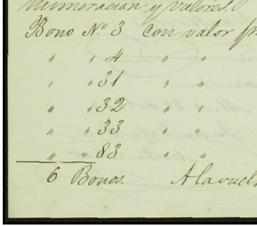 numeracion y valores.
Bono Nº 3 con valor
" " 4 " "
" " 31 " "
" " 32 " "
" " 33 " "
" " 83 " "
6 Bonos. A la vuel